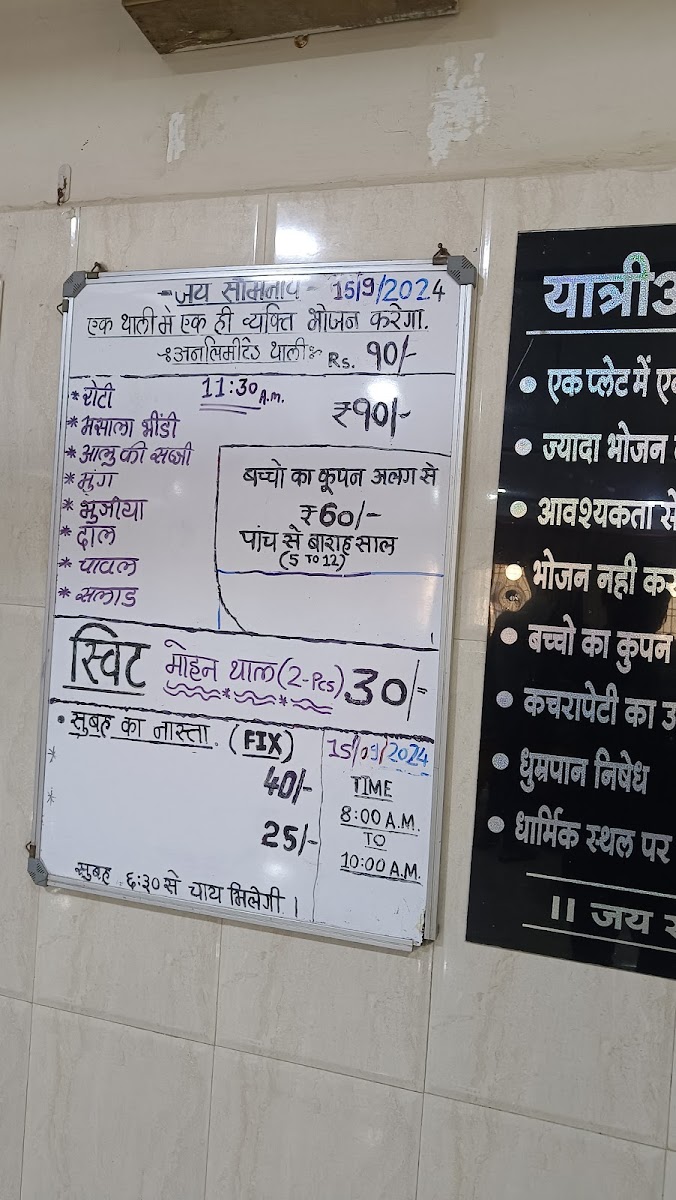 जय सोमनाथ - 15/9/2024
एक थाली मे एक ही व्यक्ति भोजन करेगा.
अनलिमीटेड थाली Rs. 90/-
11:30 A.M.
₹90/-
* रोटी
* मसाला भींडी
* आलु की सब्जी
* मुंग
* भुजीया
* दाल
* चावल
* सलाड
बच्चो का कूपन अलग से
₹60/-
पांच से बाराह साल
(5 TO 12)
स्विट मोहन थाल (2-Pcs) 30/=
• सुबह का नास्ता. (FIX)
40/-
25/-
15/09/2024
TIME
8:00 A.M.
TO
10:00 A.M.
सुबह ६:३० से चाय मिलेगी।
यात्रीअ
• एक प्लेट में ए
• ज्यादा भोजन
• आवश्यकता से
• भोजन नही कर
• बच्चो का कुपन
• कचरापेटी का उ
• धुम्रपान निषेध
• धार्मिक स्थल पर
।। जय स